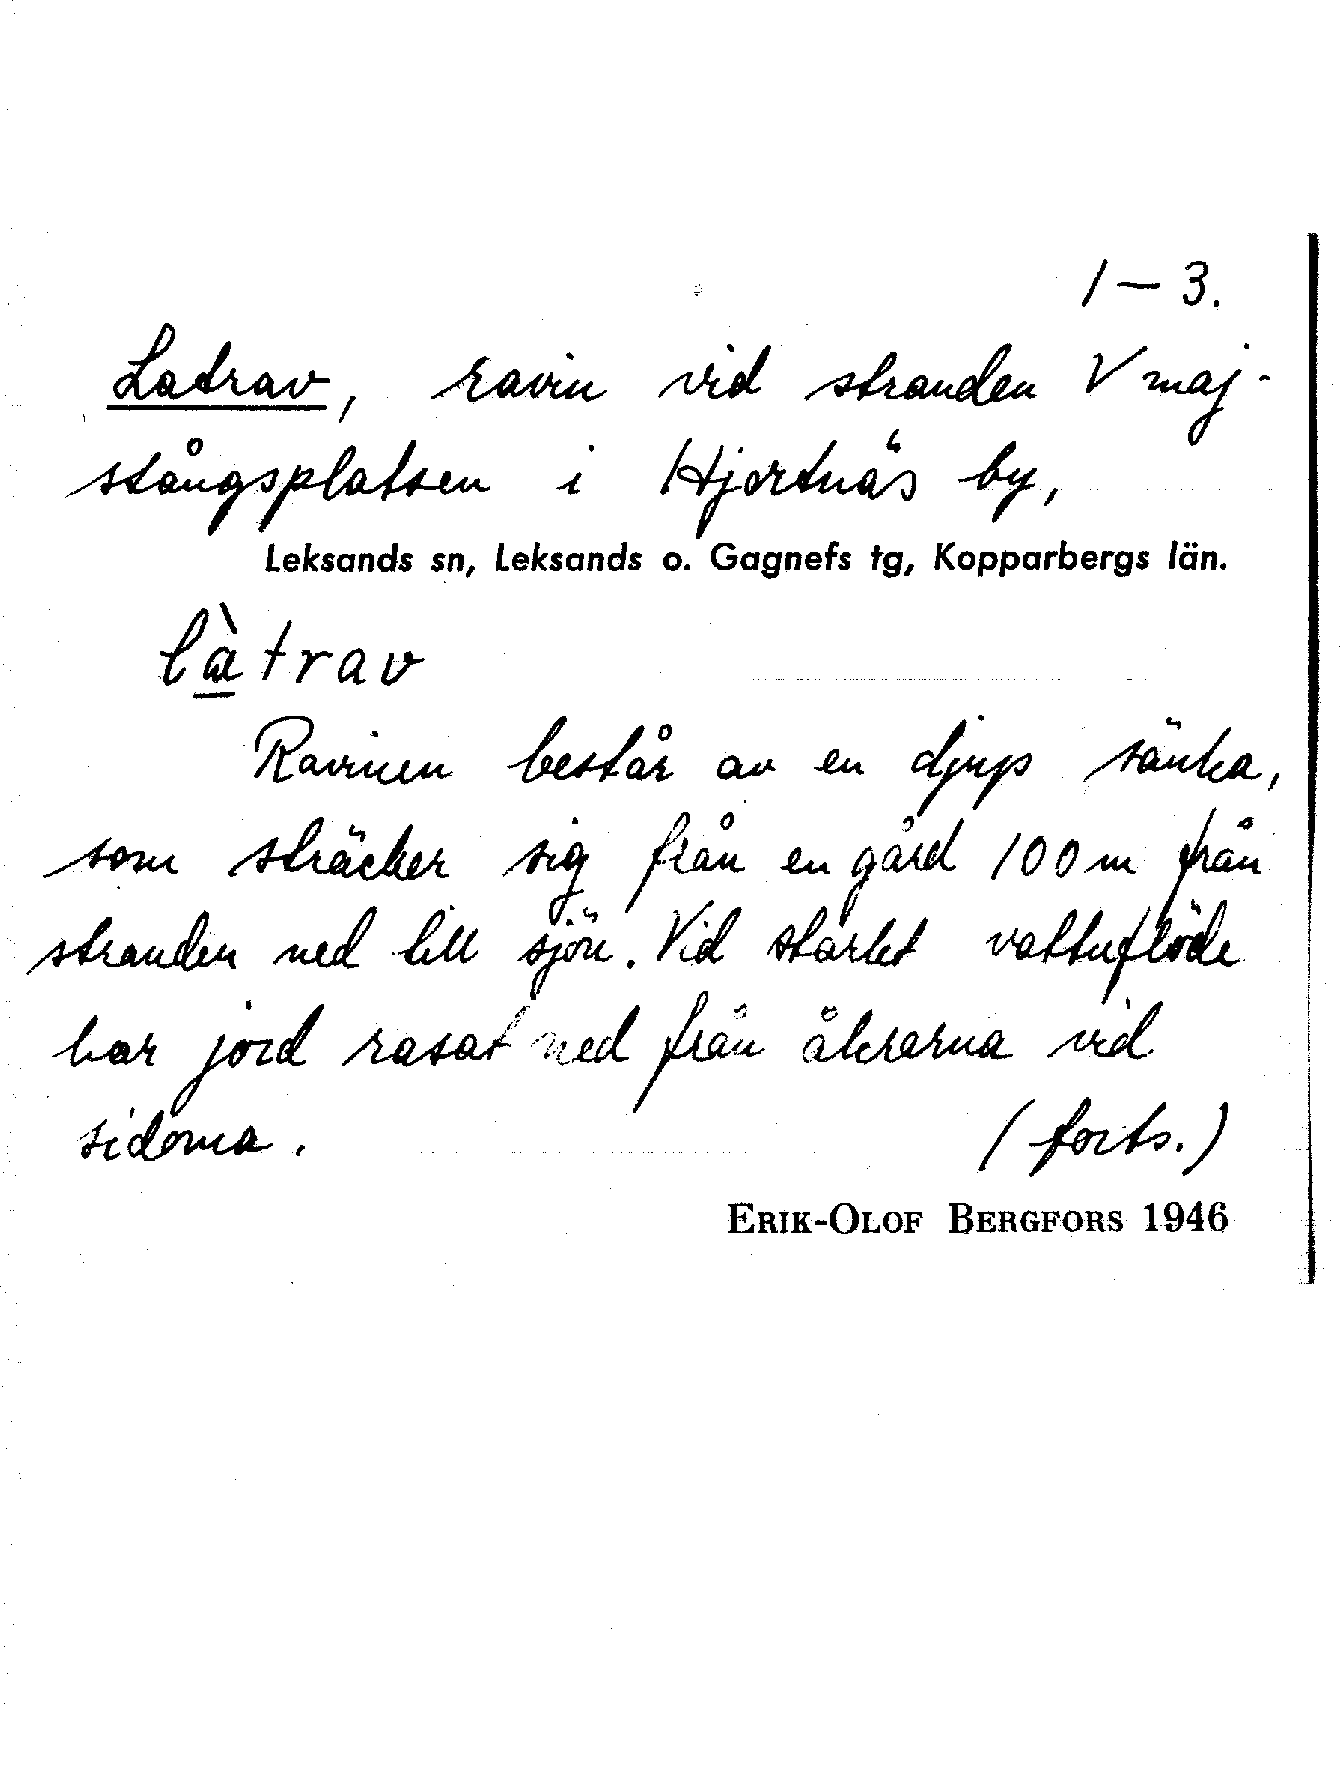 1 – 3.
Latrav, ravin vid stranden V maj-
stångsplatsen i Hjortnäs by,
Leksands sn, Leksands o. Gagnefs tg, Kopparbergs län.
làtrav
Ravinen består av en djup sänka,
som sträcker sig från en gård 100 m från
stranden ned till sjön. Vid starkt vattuflöde
har jord rasat ned från åkrarna vid
sidorna. (forts.)
ERIK-OLOF BERGFORS 1946